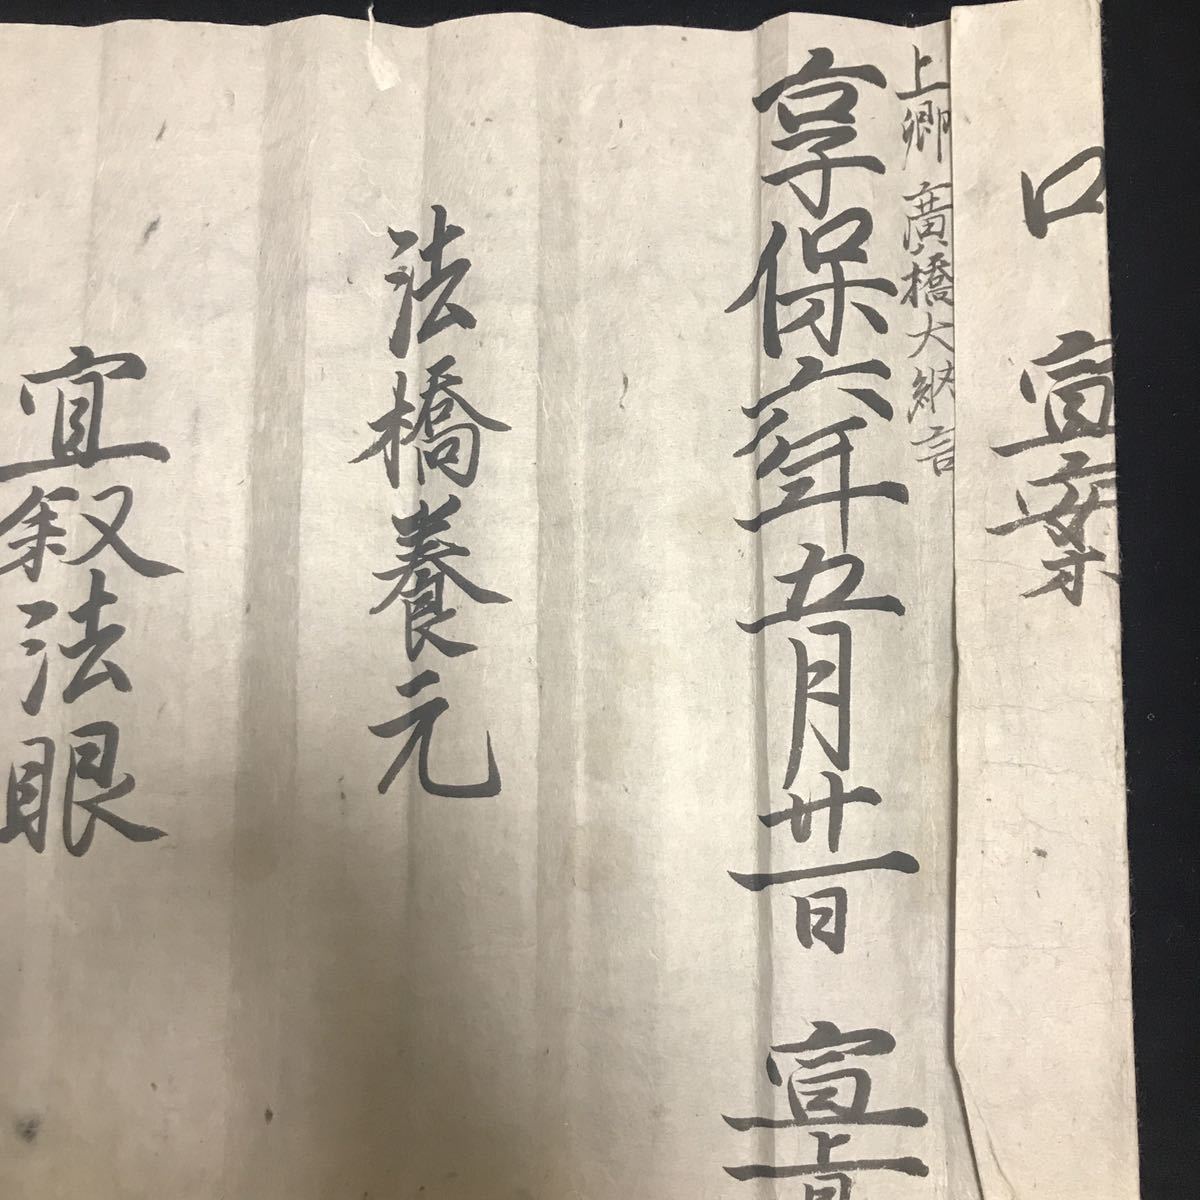 口宣案
上卿 廣橋大納言
享保六年五月廿一日 宣旨
法橋養元
宜叙法眼